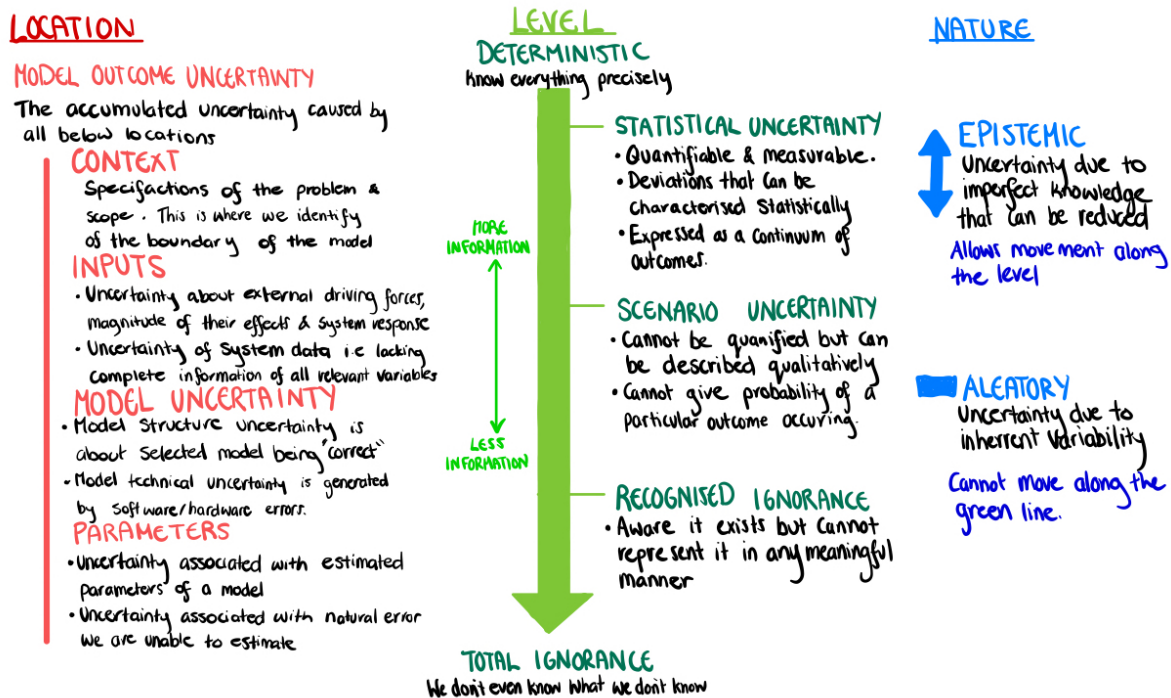 LOCATION
MODEL OUTCOME UNCERTAINTY
The accumulated uncertainty caused by
all below locations
CONTEXT
Specifactions of the problem &
scope. This is where we identify
of the boundary of the model
INPUTS
• Uncertainty about external driving forces,
magnitude of their effects & system response
• Uncertainty of system data i.e lacking
complete information of all relevant variables
MODEL UNCERTAINTY
• Model structure uncertainty is
about selected model being "correct"
• Model technical uncertainty is generated
by software/hardware errors.
PARAMETERS
• Uncertainty associated with estimated
parameters of a model
• Uncertainty associated with natural error
we are unable to estimate
LEVEL
DETERMINISTIC
Know everything precisely
MORE
INFORMATION
LESS
INFORMATION
STATISTICAL UNCERTAINTY
• Quantifiable & measurable.
• Deviations that can be
characterised statistically
• Expressed as a continuum of
outcomes.
SCENARIO UNCERTAINTY
• Cannot be quantified but can
be described qualitatively
• Cannot give probability of a
particular outcome occuring.
RECOGNISED IGNORANCE
• Aware it exists but cannot
represent it in any meaningful
manner
TOTAL IGNORANCE
We don't even know what we don't know
NATURE
EPISTEMIC
Uncertainty due to
imperfect knowledge
that can be reduced
Allows movement along
the level
ALEATORY
Uncertainty due to
inherrent variability
Cannot move along the
green line.